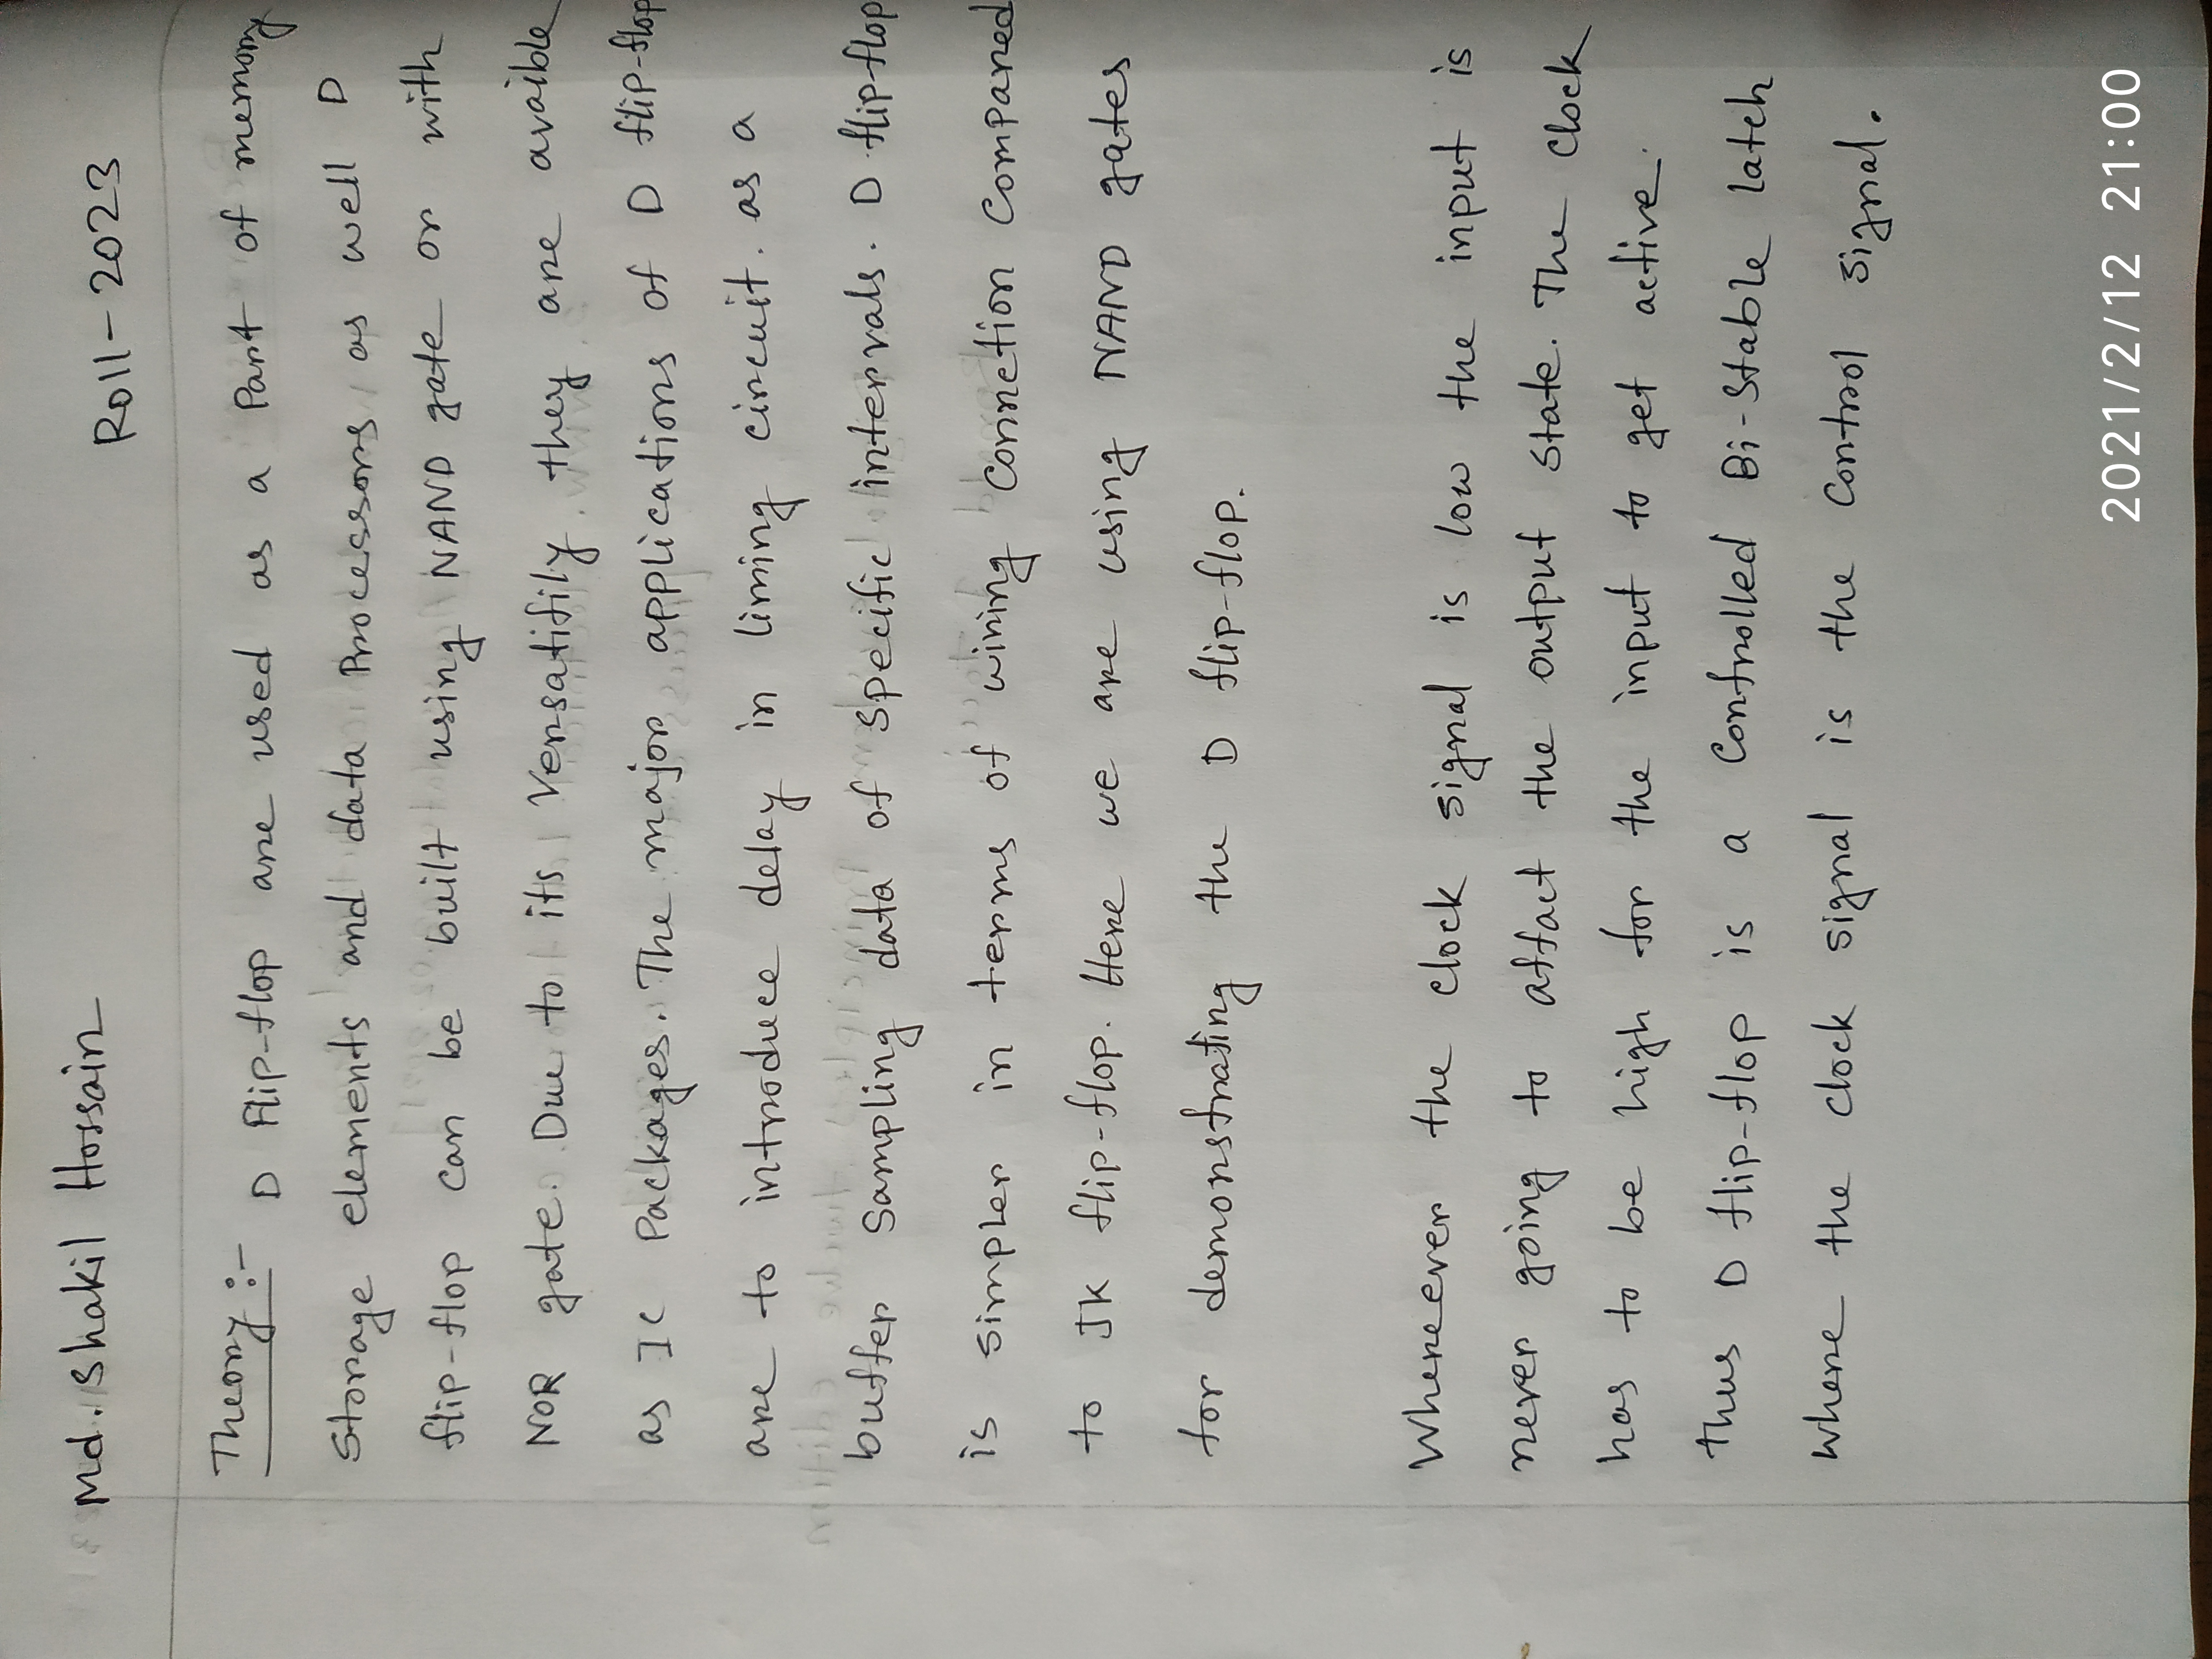 Md. Shakil Hossain
Roll-2023
Theory :- D Flip-flop are used as a Part of memory
Storage elements and data Processors as well D
flip-flop can be built using NAND gate or with
NOR gate. Due to its Versatifily they are avaible
as IC Packages. The major applications of D flip-flop
are to introduce delay in liming circuit. as a
buffer Sampling data of Specific intervals. D flip-flop
is simpler in terms of wiring Connetion Compared
to JK flip-flop. Here we are using NAND gates
for demonstrating the D flip-flop.
Whereever the clock signal is low the input is
never going to affact the output state. The Clock
has to be high for the input to get active.
thus D flip-flop is a Controlled Bi-Stable latch
where the clock signal is the Control signal.
2021/2/12 21:00